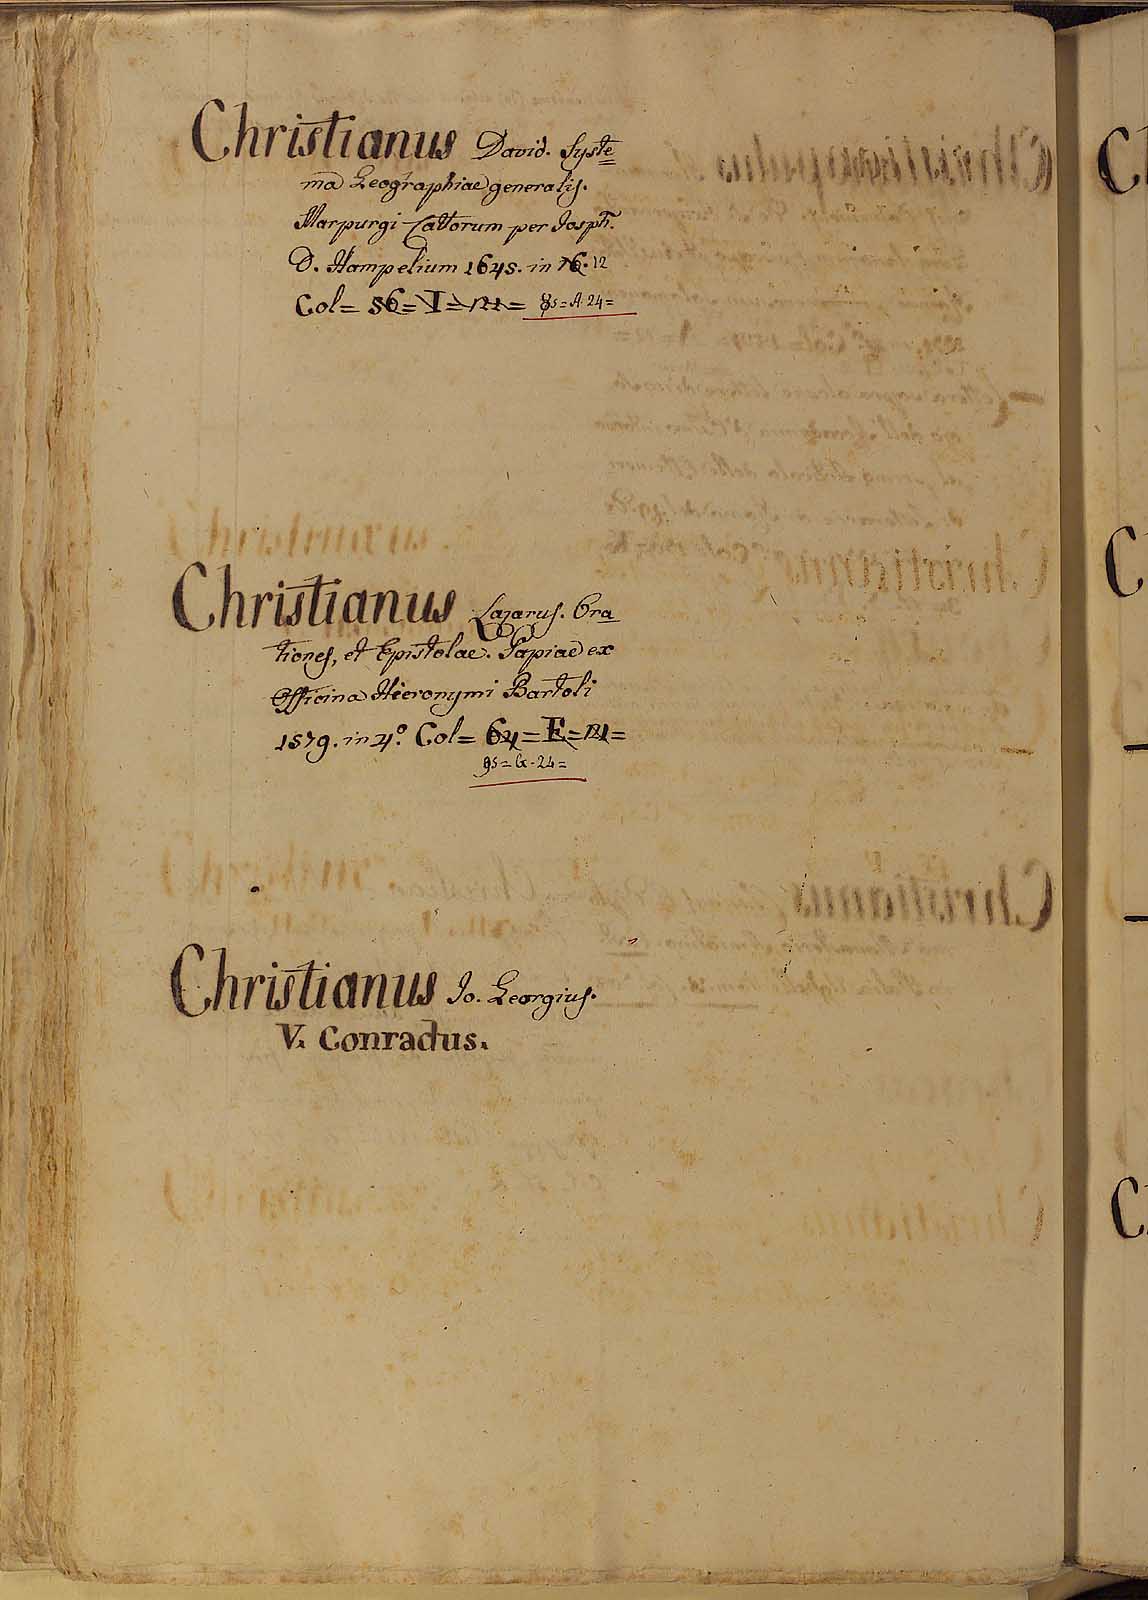 Christianus David. Syste=
ma Geographiae generalis.
Marpurgi Cattorum per Josph.
D. Hampelium 1645. in 16. 12
Col= 56= I= 121= 85=A.24=
Christianus Lazarus. Ora
tiones, et Epistolae. Papiae ex
Officina Hieronymi Bartoli
1579. in 4.º Col= 64= E= 121=
95=G.24=
Christianus Jo. Georgius.
V. Conradus.